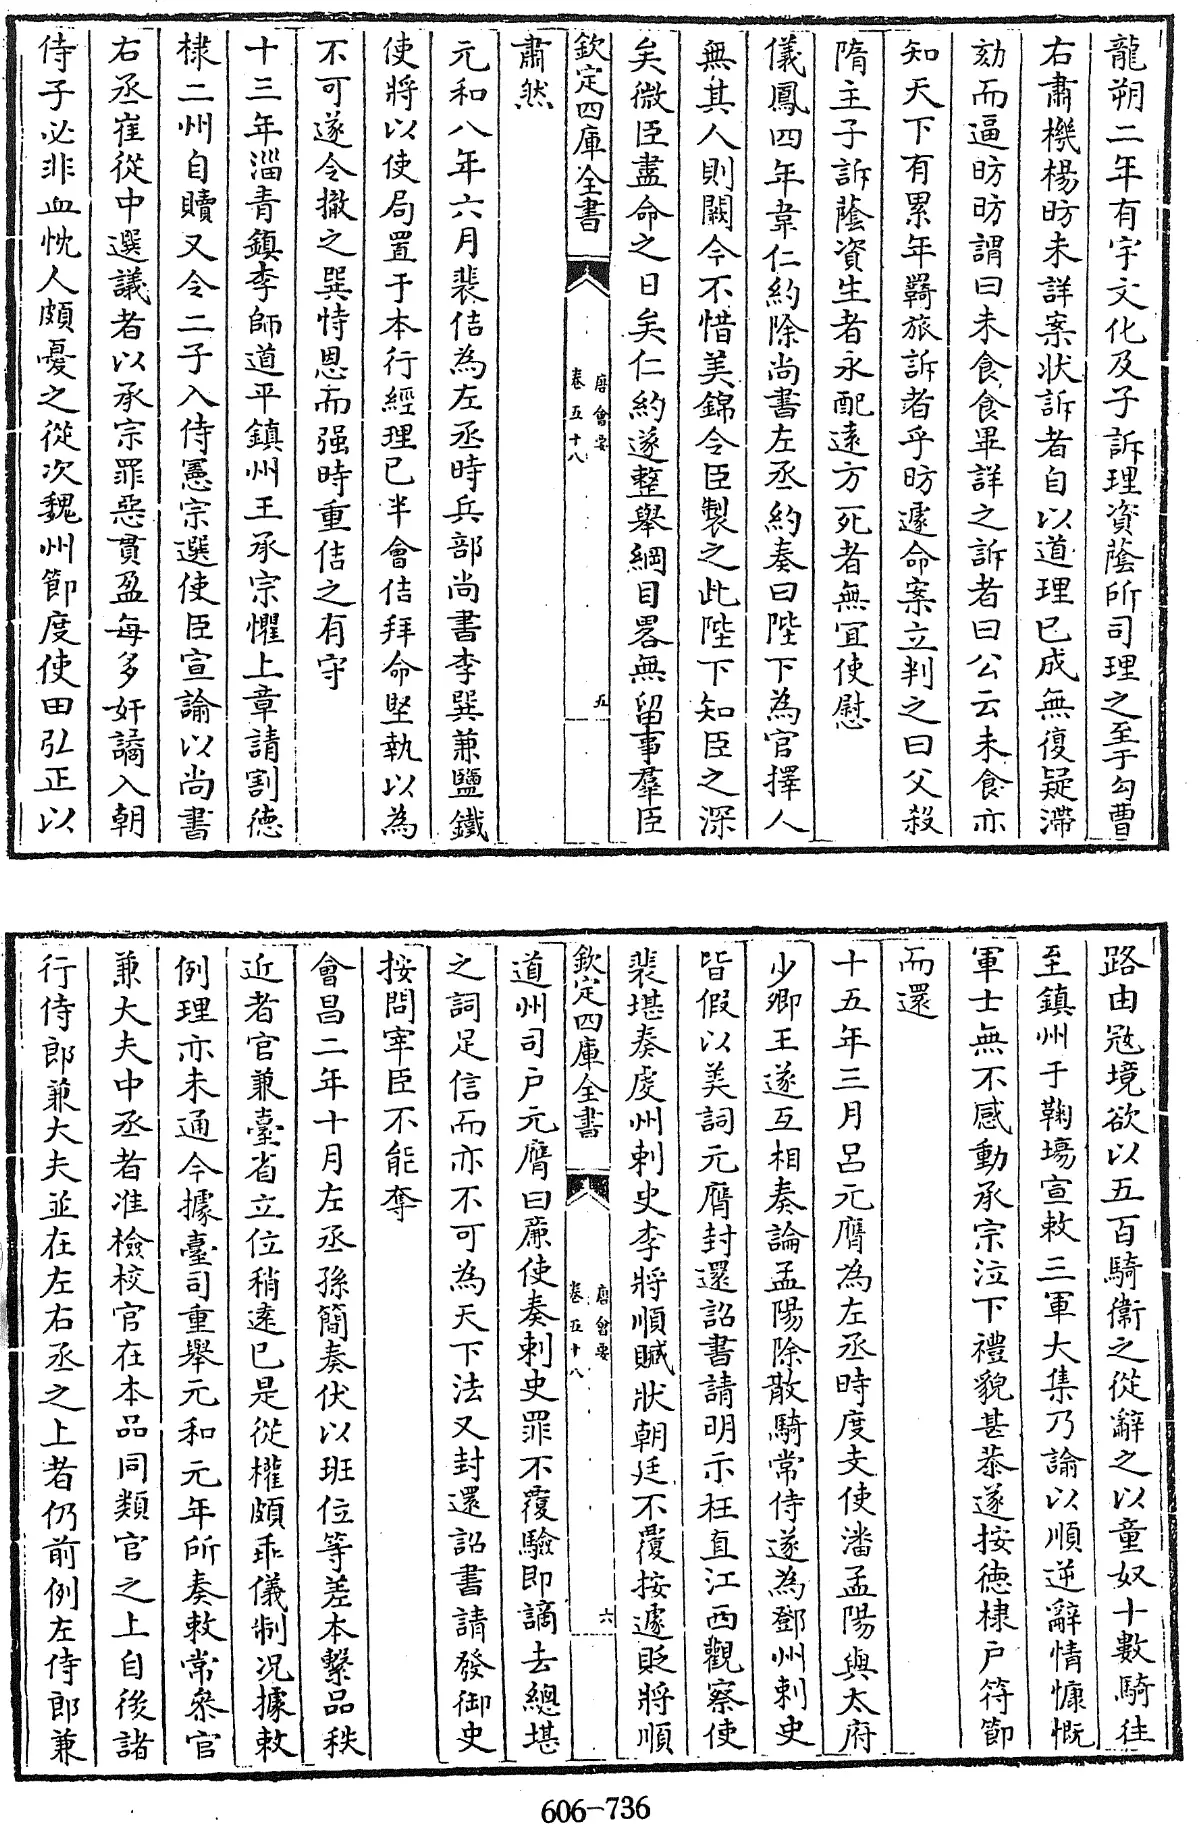 龍朔二年有宇文化及子訴理資蔭所司理之至于勾曹
右肅機楊昉未詳案狀訴者自以道理已成無復疑滯
劾而逼昉昉謂曰未食食畢詳之訴者曰公云未食亦
知天下有累年羇旅訴者乎昉遽命案立判之曰父殺
隋主子訴蔭資生者永配遠方死者無宜使慰
儀鳳四年韋仁約除尚書左丞約奏曰陛下為官擇人
無其人則闕今不惜美錦令臣製之此陛下知臣之深
矣微臣盡命之日矣仁約遂整舉綱目畧無留事羣臣
欽定四庫全書
唐會要
卷五十八
五
肅然
元和八年六月裴佶為左丞時兵部尚書李巽兼鹽鐵
使將以使局置于本行經理已半會佶拜命堅執以為
不可遂令撤之巽恃恩而强時重佶之有守
十三年淄青鎮李師道平鎮州王承宗懼上章請割德
棣二州自贖又令二子入侍憲宗選使臣宣諭以尚書
右丞崔從中選議者以承宗罪惡貫盈每多奸譎入朝
侍子必非血忱人頗憂之從次魏州節度使田弘正以
路由宼境欲以五百騎衞之從辭之以童奴十數騎往
至鎮州于鞠塲宣敕三軍大集乃諭以順逆辭情慷慨
軍士無不感動承宗泣下禮貌甚恭遂按德棣戶符節
而還
十五年三月呂元膺為左丞時度支使潘孟陽與太府
少卿王遂互相奏論孟陽除散騎常侍遂為鄧州刺史
皆假以美詞元膺封還詔書請明示枉直江西觀察使
裴堪奏虔州刺史李將順贓狀朝廷不覆按遽貶將順
欽定四庫全書
唐會要
卷五十八
六
道州司戶元膺曰廉使奏刺史罪不覆驗即謫去總堪
之詞足信而亦不可為天下法又封還詔書請發御史
按問宰臣不能奪
會昌二年十月左丞孫簡奏伏以班位等差本繫品秩
近者官兼臺省立位稍遠已是從權頗乖儀制况據敕
例理亦未通今據臺司重舉元和元年所奏敕常參官
兼大夫中丞者准檢校官在本品同類官之上自後諸
行侍郎兼大夫並在左右丞之上者仍前例左侍郎兼
606-736